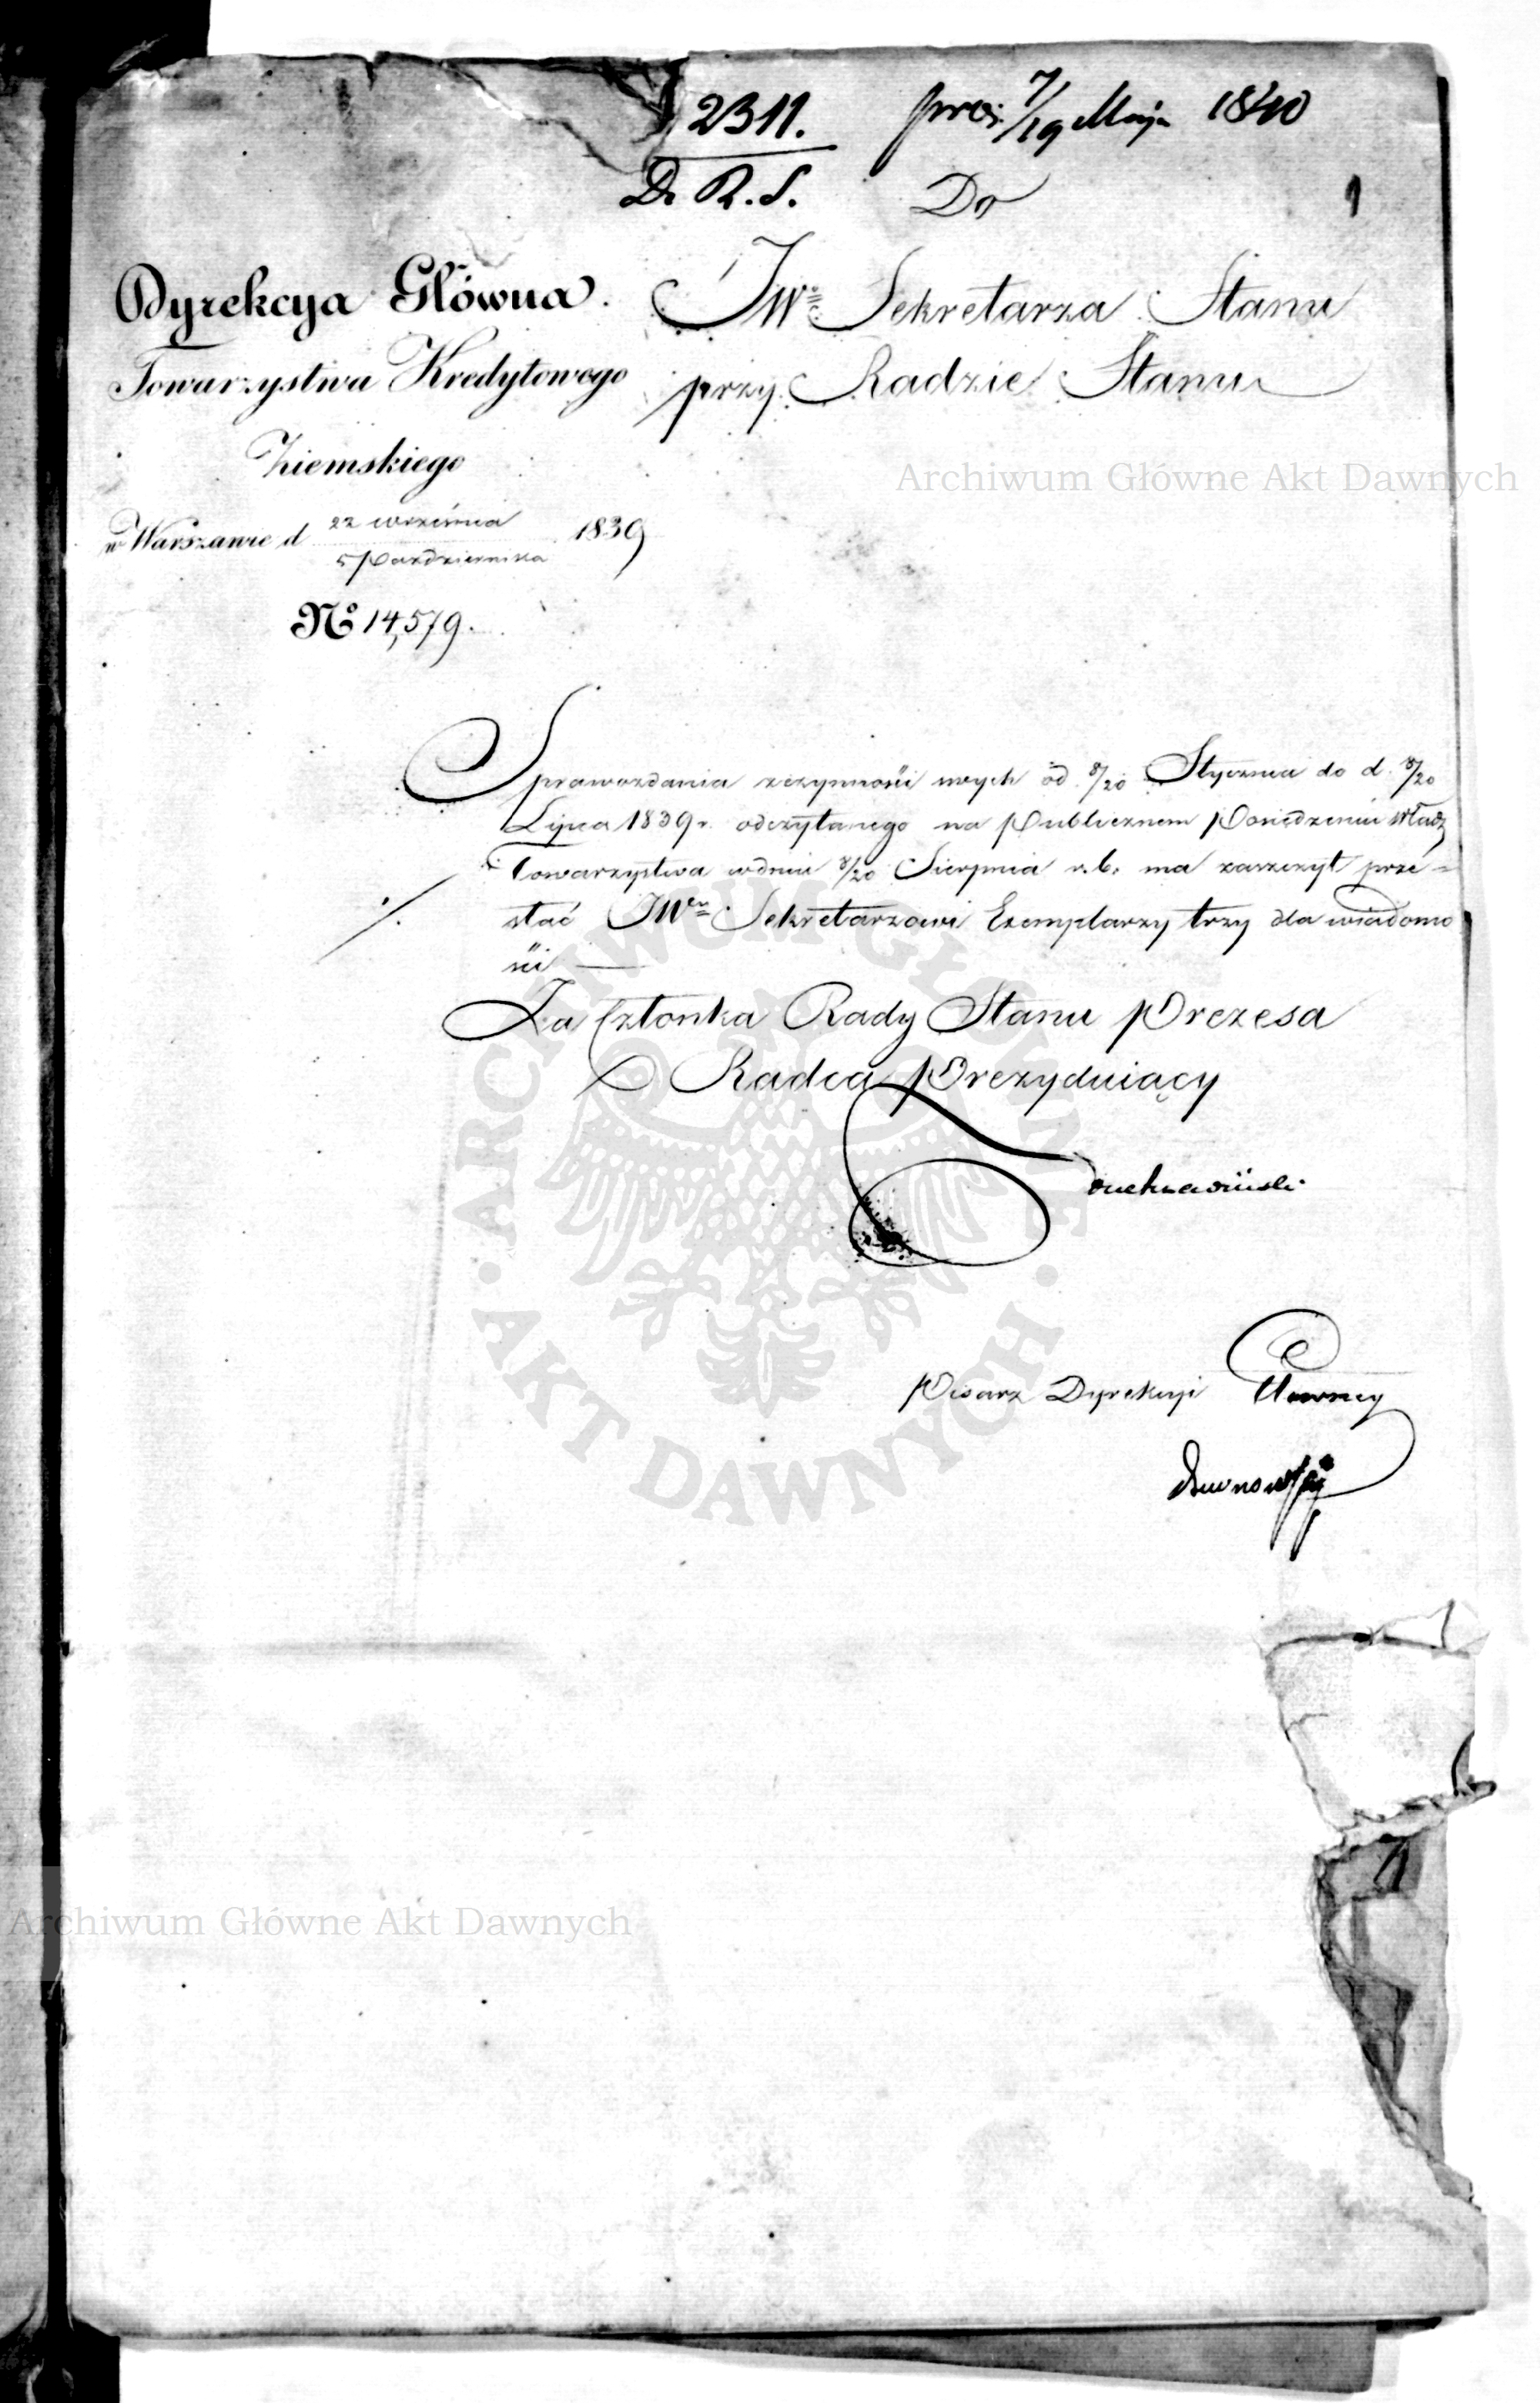 2311.
D. R. S.
prez. 7/19 Maja 1840
1
Do
JWº Sekretarza Stanu
przy Radzie Stanu
Dyrekcya Główna
Towarzystwa Kredytowego
Ziemskiego
w Warszawie d 22 września 1839
5 Października
Nº 14,579.
Archiwum Główne Akt Dawnych
Sprawozdania z czynności swych od 8/20 Stycznia do d. 8/20
Lipca 1839 r. odczytanego na Publicznem Posiedzeniu Władz
Towarzystwa w dniu 8/20 Sierpnia r. b. ma zaszczyt prze=
słać JWu Sekretarzowi Exemplarzy trzy dla wiadomo
ści —
Za Członka Rady Stanu Prezesa
Radca Prezyduiący
Pisarz Dyrekcyi Główney
ARCHIWUM GŁÓWNE
AKT DAWNYCH
Archiwum Główne Akt Dawnych